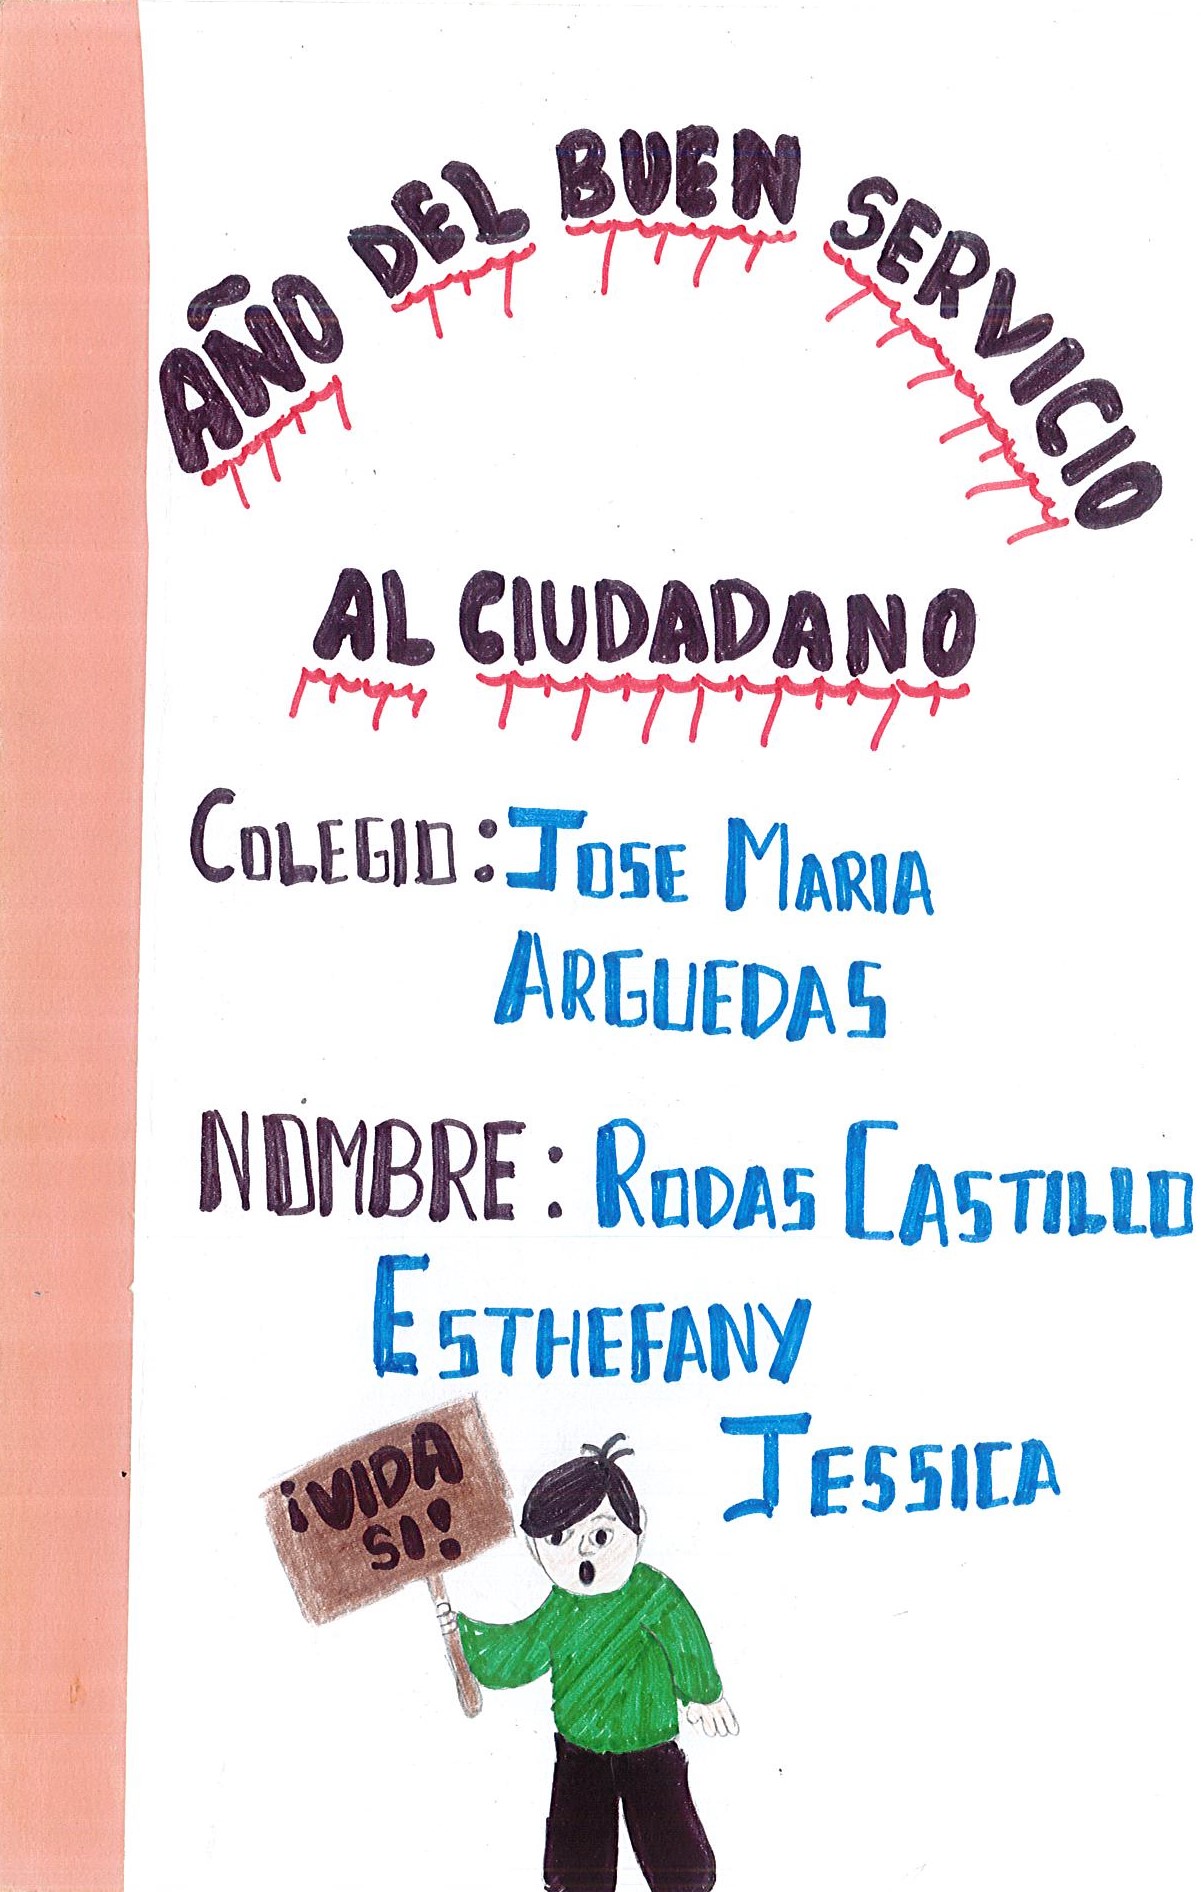 AÑO DEL BUEN SERVICIO
AL CIUDADANO
COLEGIO: JOSE MARIA
ARGUEDAS
NOMBRE: RODAS CASTILLO
ESTHEFANY
JESSICA
¡VIDA
SI!